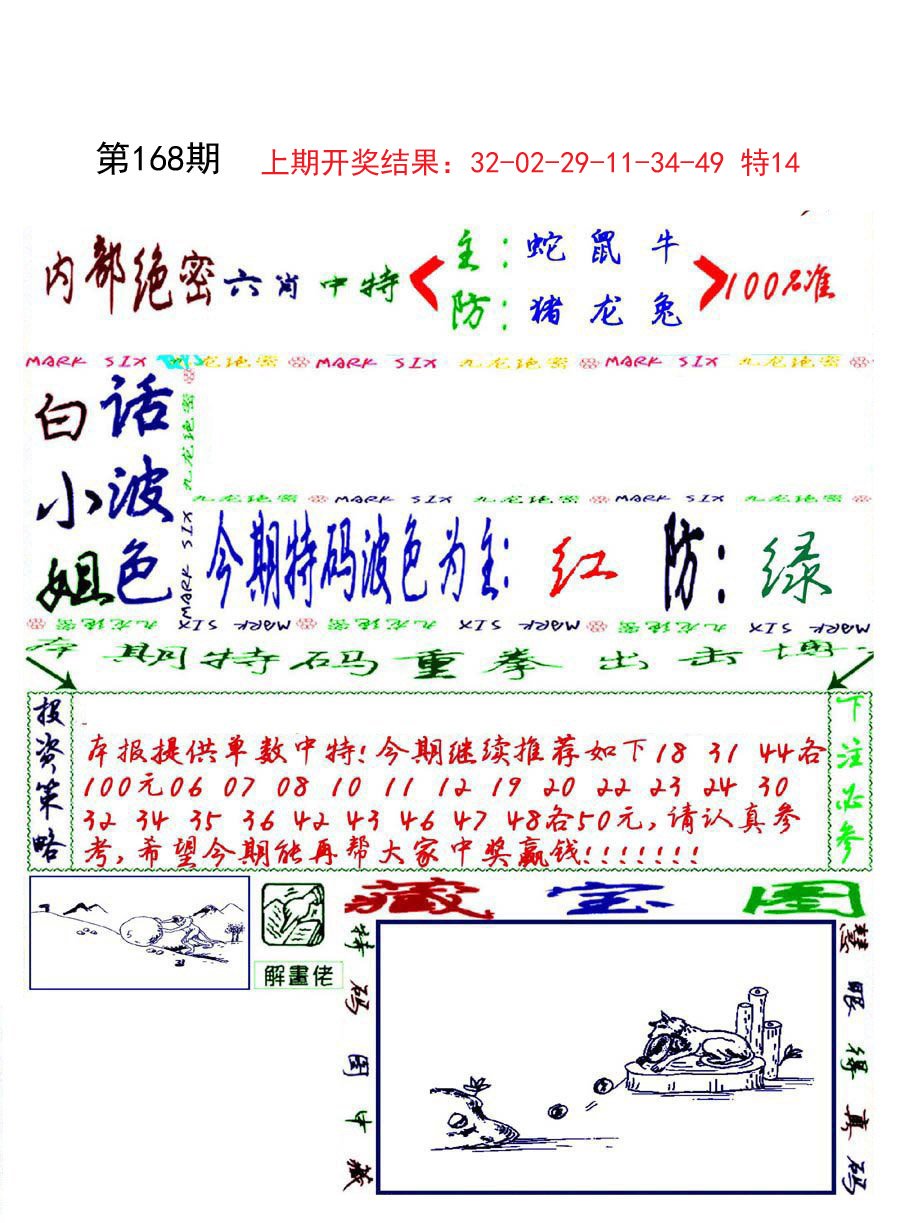 第168期 上期开奖结果：32-02-29-11-34-49 特14
内部绝密六肖中特
主：蛇 鼠 牛
防：猪 龙 兔
100%准
MARK SIX 九龙绝密 MARK SIX 九龙绝密 MARK SIX 九龙绝密
九龙绝密
MARK SIX
白话
小波
姐色
九龙绝密 MARK SIX 九龙绝密 MARK SIX 九龙绝密
今期特码波色为主：红 防：绿
九龙绝密 MARK SIX 九龙绝密 MARK SIX 九龙绝密 MARK SIX
本期特码重拳出击博
投资策略
本报提供单数中特！今期继续推荐如下18 31 44各
100元06 07 08 10 11 12 19 20 22 23 24 30
32 34 35 36 42 43 46 47 48各50元，请认真参
考，希望今期能再帮大家中奖赢钱！！！！！！！
下注必参
解畫佬
藏宝图
特码图中藏
慧眼得真码